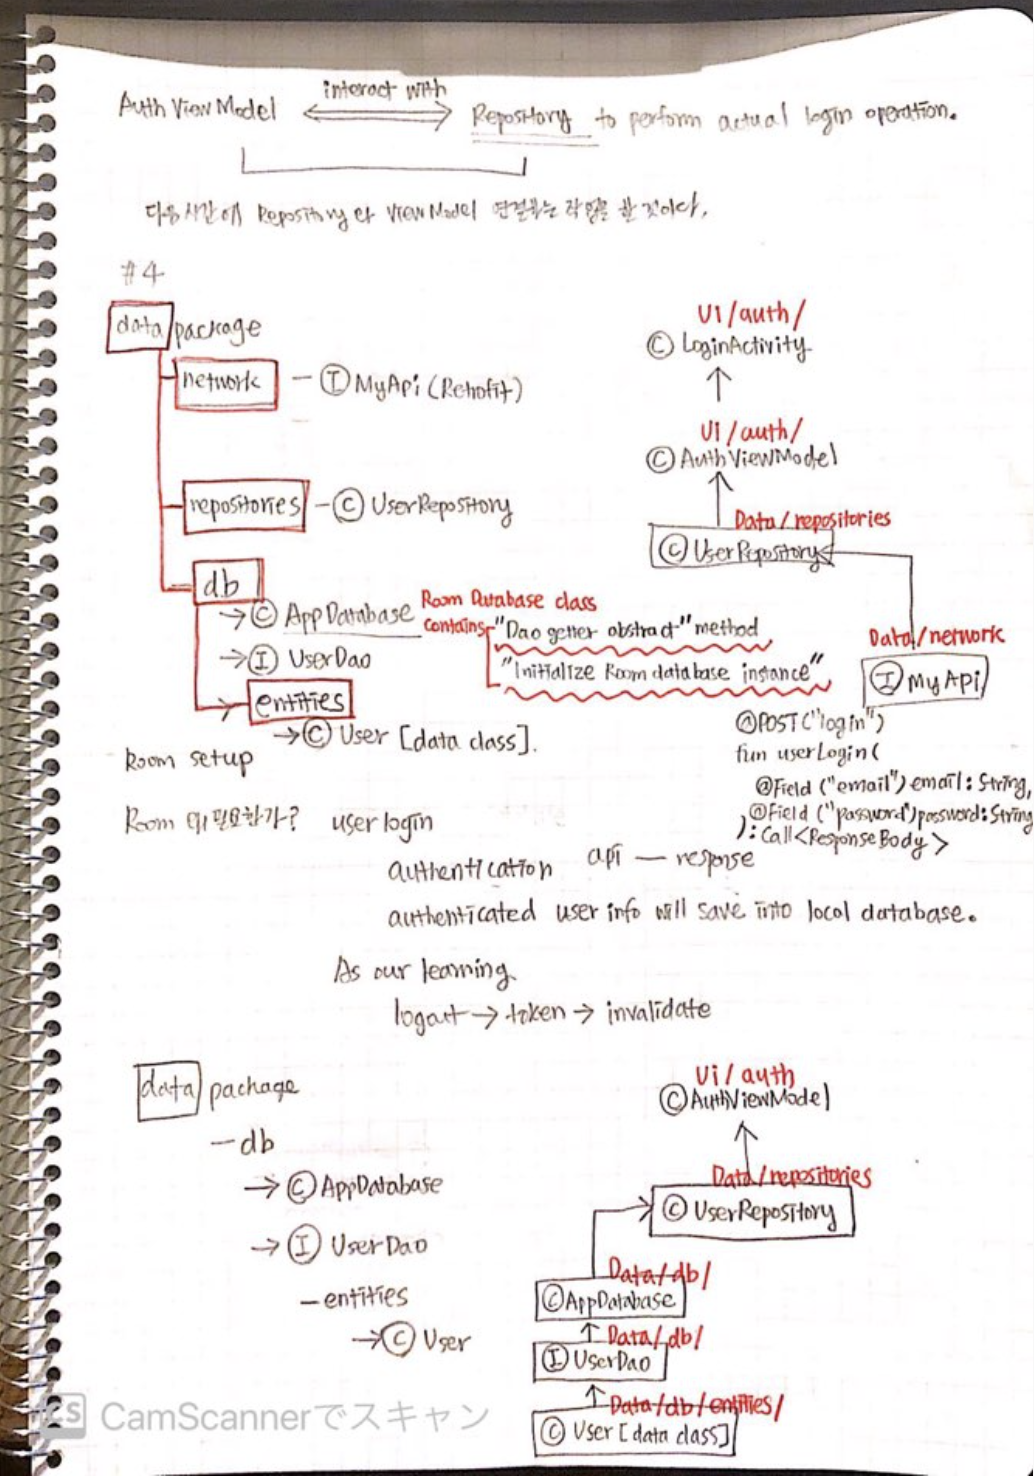 Auth View Model interact with Repository to perform actual login operation.
다음시간에 Repository 와 View Model 연결하는 작업을 할 것이다.
#4
data package
network - Ⓘ MyApi (Retrofit)
repositories - Ⓒ UserRepository
db
→ Ⓒ AppDatabase Room Database class
contains "Dao getter abstract" method
→ Ⓘ UserDao
"Initialize Room database instance"
entities
→ Ⓒ User [data class].
Ui/auth/
Ⓒ LoginActivity
Ui/auth/
Ⓒ AuthViewModel
Data/repositories
Ⓒ UserRepository
Data/network
Ⓘ MyApi
@POST("login")
fun userLogin(
@Field ("email") email: String,
@Field ("password") password: String
): Call<ResponseBody>
Room setup
Room 왜 필요한가? user login
authentication api — response
authenticated user info will save into local database.
As our learning
logout → token → invalidate
data package
- db
→ Ⓒ AppDatabase
→ Ⓘ UserDao
- entities
→ Ⓒ User
Ui/auth
Ⓒ AuthViewModel
Data/repositories
Ⓒ UserRepository
Data/db/
Ⓒ AppDatabase
Data/db/
Ⓘ UserDao
Data/db/entities/
Ⓒ User [data class]
CS CamScannerでスキャン